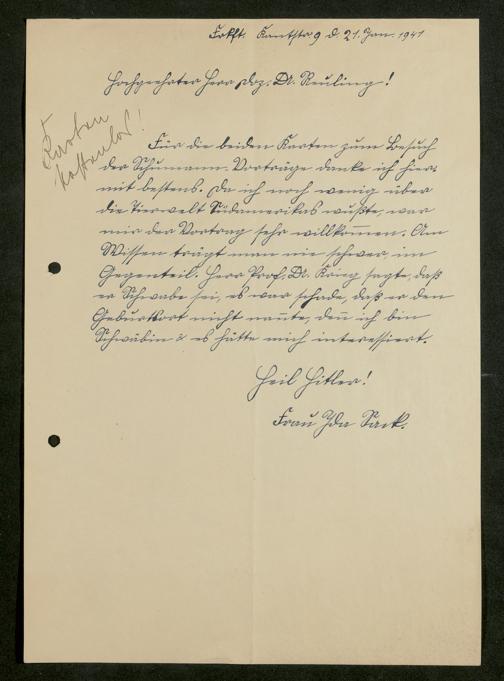 Frkft. Kantstr 9 d. 21. Jan. 1941
Hochgeehrter Herr Doz. Dr. Reuling!
5
Karten
kostenlos!
Für die beiden Karten zum Besuch
der Schumann-Vorträge danke ich hier-
mit bestens. Da ich noch wenig über
die Tierwelt Südamerikas wußte, war
mir der Vortrag sehr willkom̅en. Am
Wissen trägt man nie schwer, im
Gegenteil. Herr Prof. Dr. Krieg sagte, daß
er Schwabe sei, es war schade, daß er den
Geburtsort nicht nan̅te, den̅ ich bin
Schwäbin & es hätte mich interessiert.
Heil Hitler!
Frau Ida Sack.